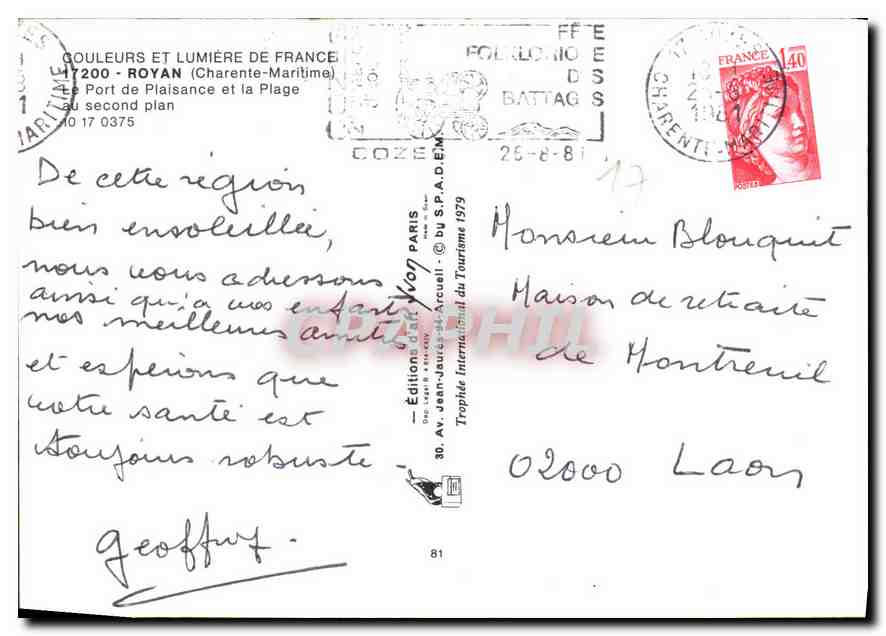 COULEURS ET LUMIÈRE DE FRANCE
17200 - ROYAN (Charente-Maritime)
Le Port de Plaisance et la Plage
au second plan
10 17 0375
De cette région
bien ensoleillée,
nous vous adressons
ainsi qu'à vos enfants
nos meilleures amitiés
et espérons que
votre santé est
toujours robuste -
Geoffroy.
— Éditions d'art Yvon PARIS
Made in
30. Av. Jean-Jaurès-94-Arcueil - © by S.P.A.D.E.M.
Trophée International du Tourisme 1979
81
FÊTE
FOLKLORIQUE
DES
BATTAGES
COZES
26-8-81
CHARENTE-MARITIME
1981
FRANCE
1,40
POSTES
17
Monsieur Blouquit
Maison de retraite
de Montreuil
02000 Laon
CPAPHIL